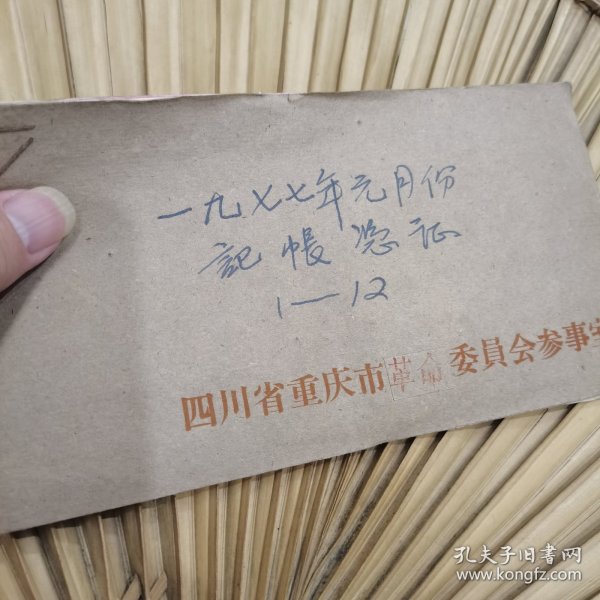 一九七七年元月份
記帳凭证
1—12
四川省重庆市革命委員会参事室
孔夫子旧书网
www.kongfz.com